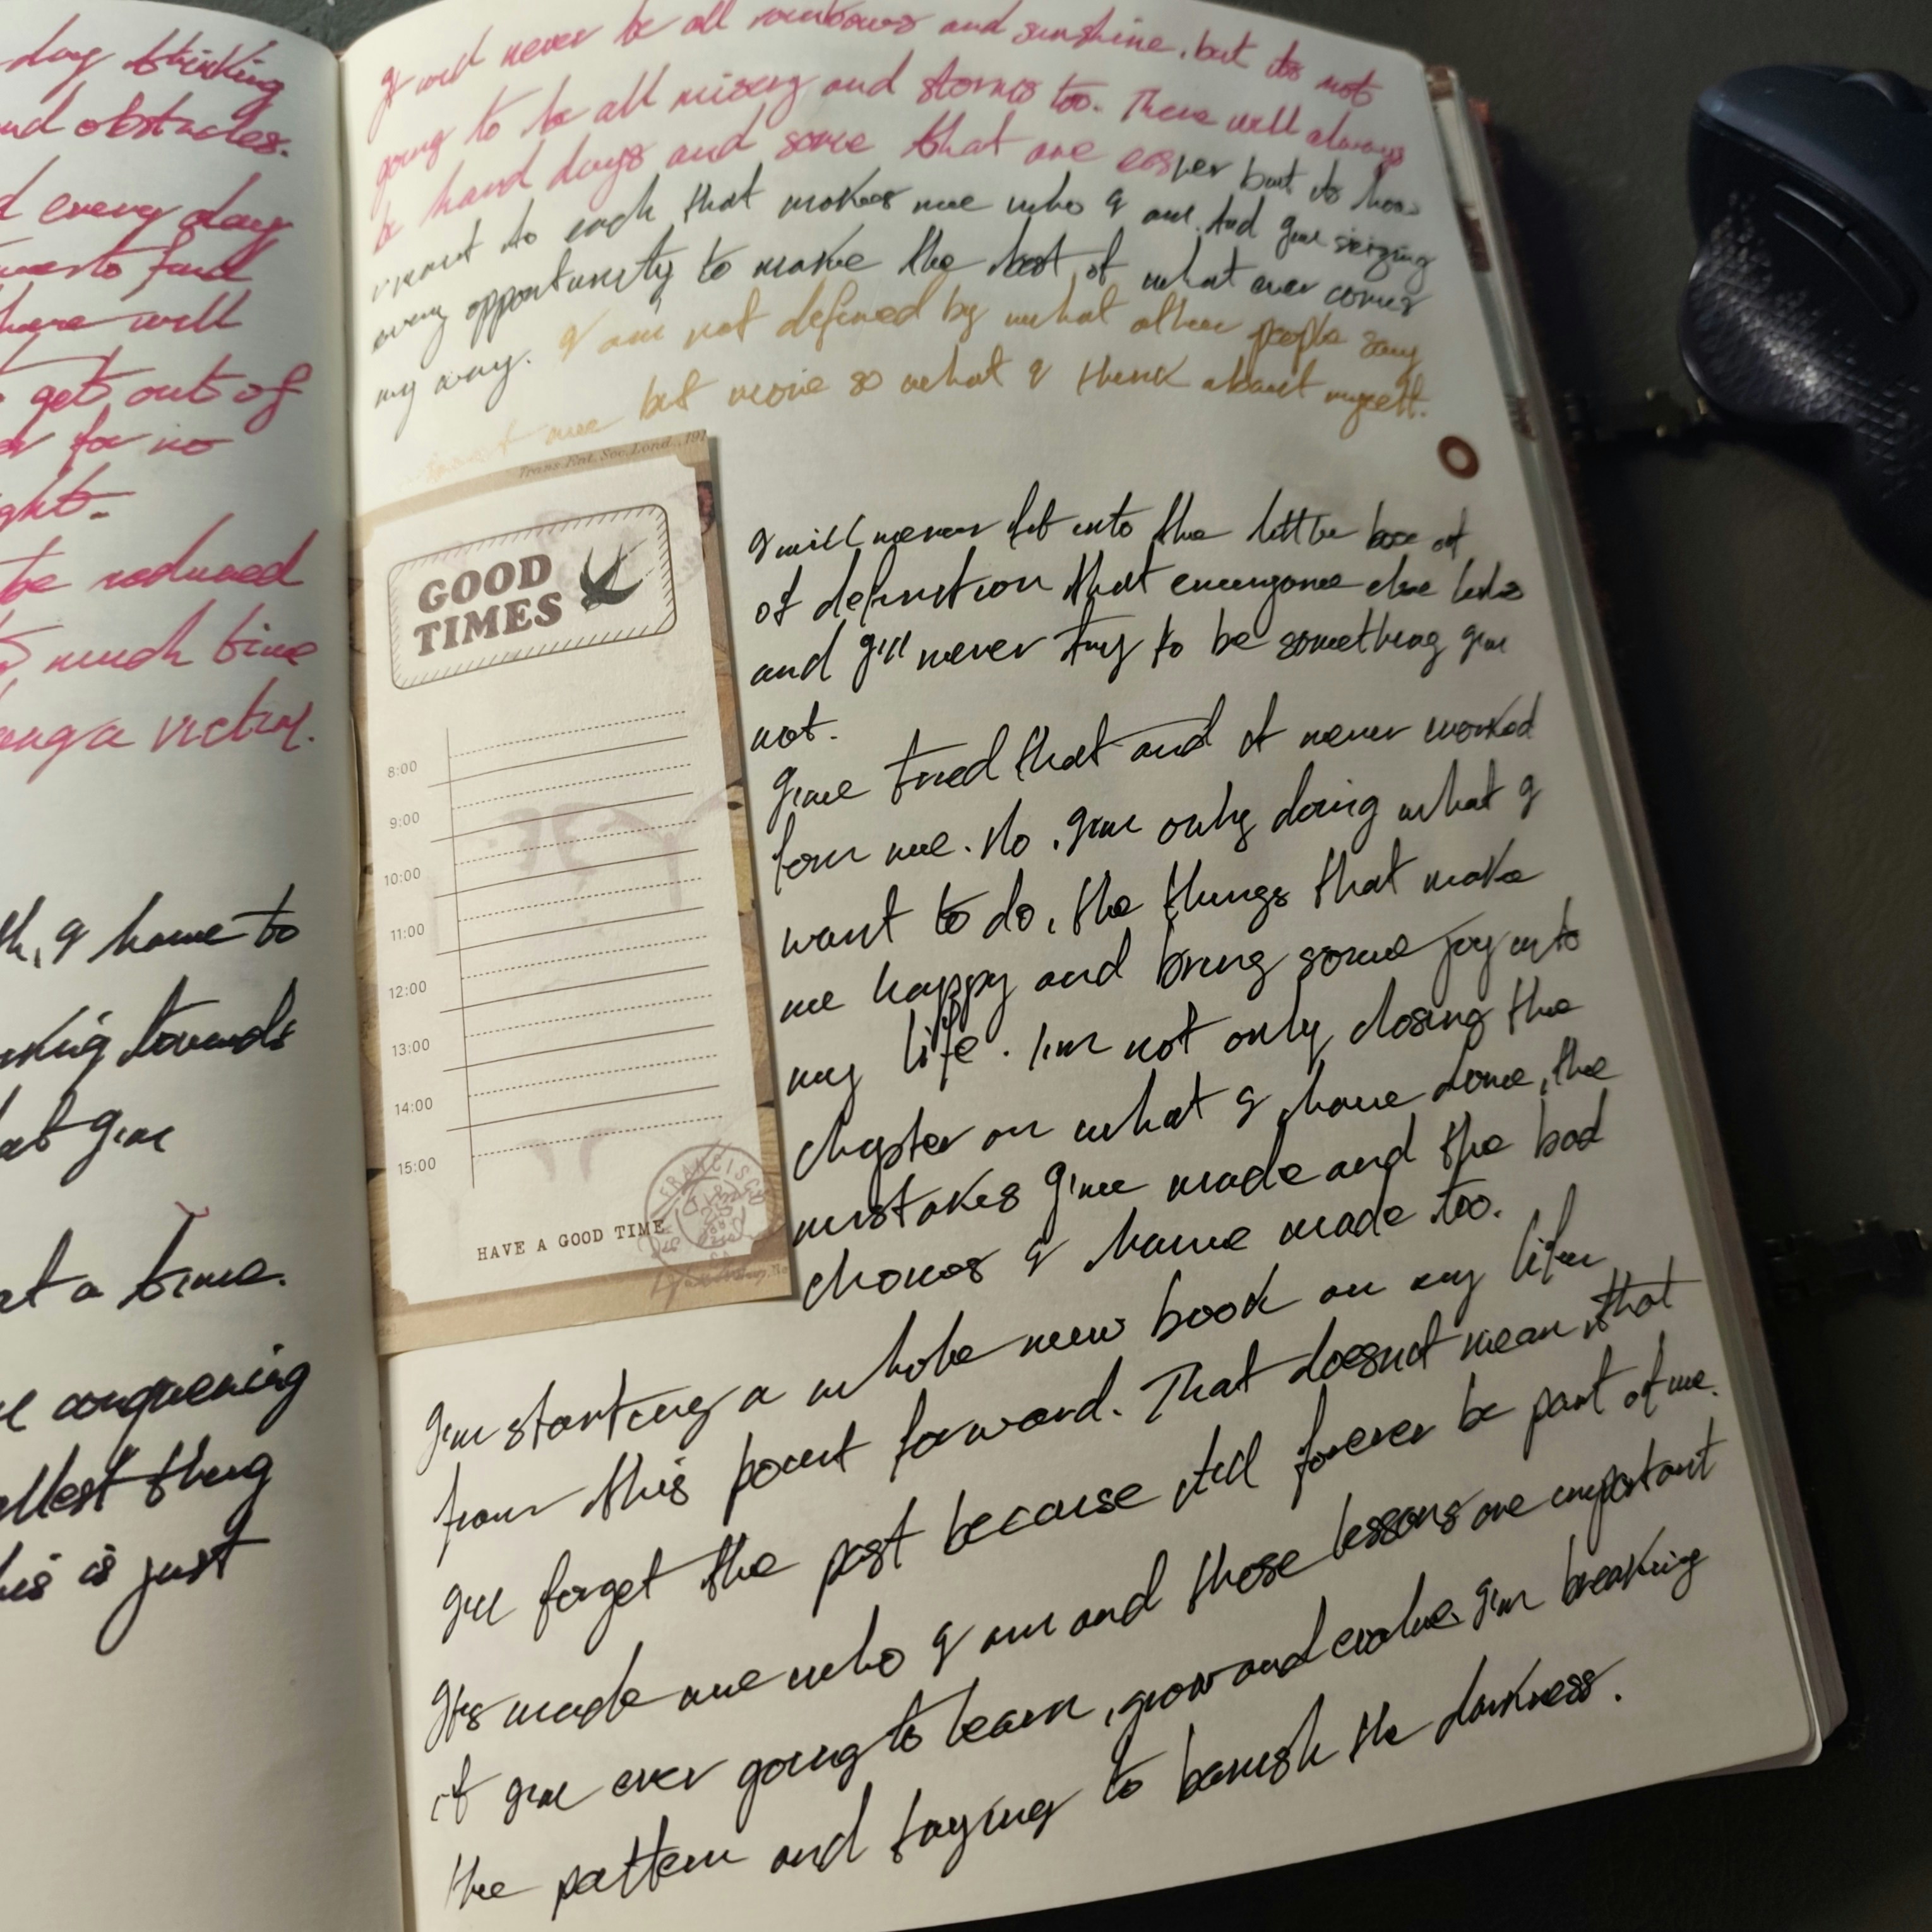 day thinking
and obstacles.
d every day
to find
there will
get out of
for no
ght.
be reduced
much time
a victim.
th, I have to
king towards
at I'm
at a time.
conquering
allest thing
his is just
It will never be all rainbows and sunshine, but its not
going to be all misery and storms too. There will always
be hard days and some that are easier but its how
I react to each that makes me who I am. And I'm seizing
every opportunity to make the best of what ever comes
my way. I am not defined by what other people say
about me but more so what I think about myself.
Trans. Ent. Soc. Lond., 191
GOOD
TIMES
8:00
9:00
10:00
11:00
12:00
13:00
14:00
15:00
FRANCISCO
HAVE A GOOD TIME
I will never fit into the little box of
of definition that everyone else
and I'll never try to be something I'm
not.
I've tried that and it never worked
for me. No. I'm only doing what I
want to do, the things that make
me happy and bring some joy into
my life. I'm not only closing the
chapter on what I have done, the
mistakes I've made and the bad
choices I have made too.
I'm starting a whole new book on my life
from this point forward. That doesnt mean that
I'll forget the past because itll forever be part of me.
Its made me who I am and those lessons are important
if I'm ever going to learn, grow and evolve. I'm breaking
the pattern and trying to banish the darkness.